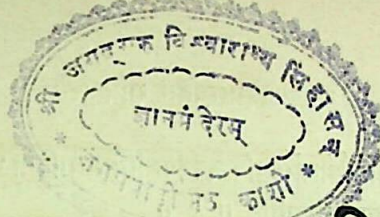 श्री जगद्गुरू विश्वाराध्य सिंहासन
ज्ञानमंदिरम्
* काशी *